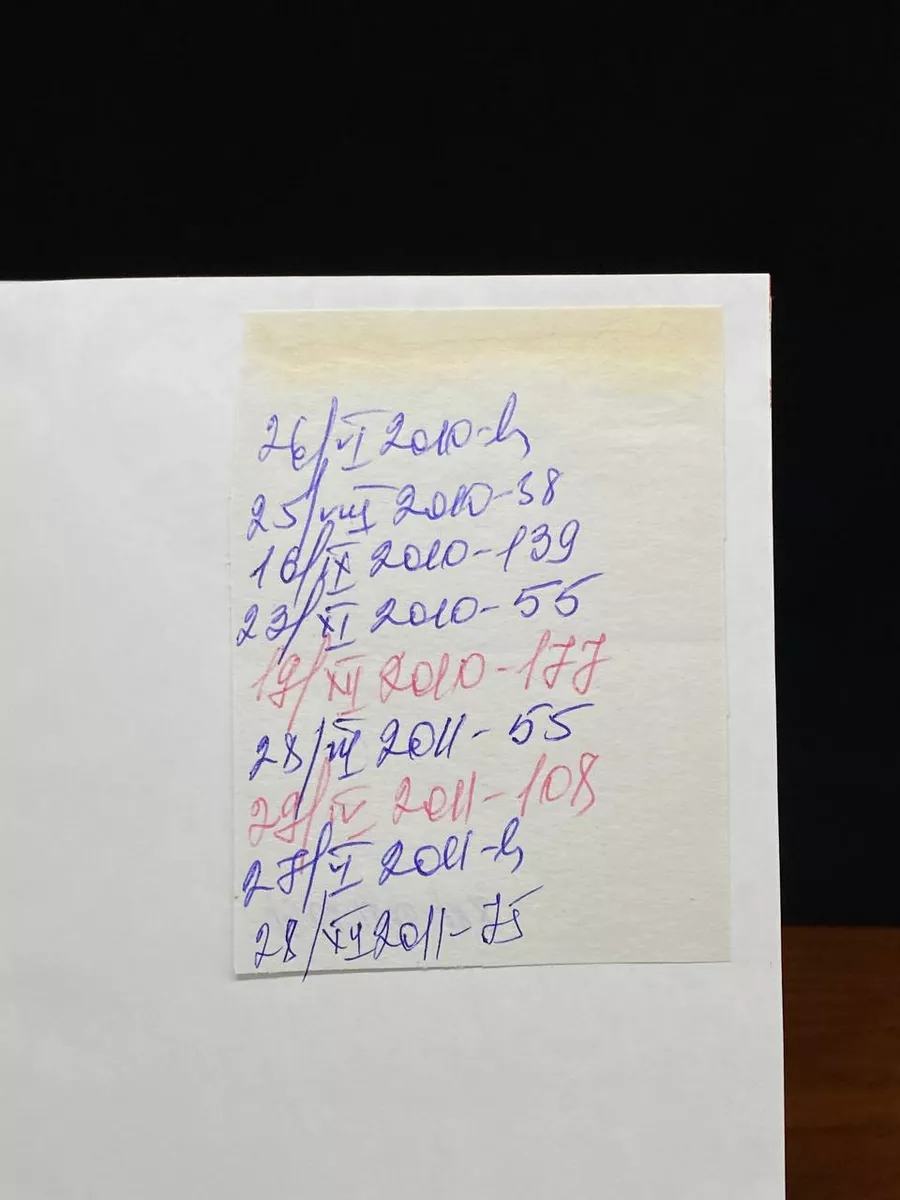 26/VI 2010-
25/VIII 2010-38
16/IX 2010-139
23/XI 2010-55
19/XII 2010-177
28/III 2011-55
29/IV 2011-108
27/VI 2011-
28/XII 2011-75